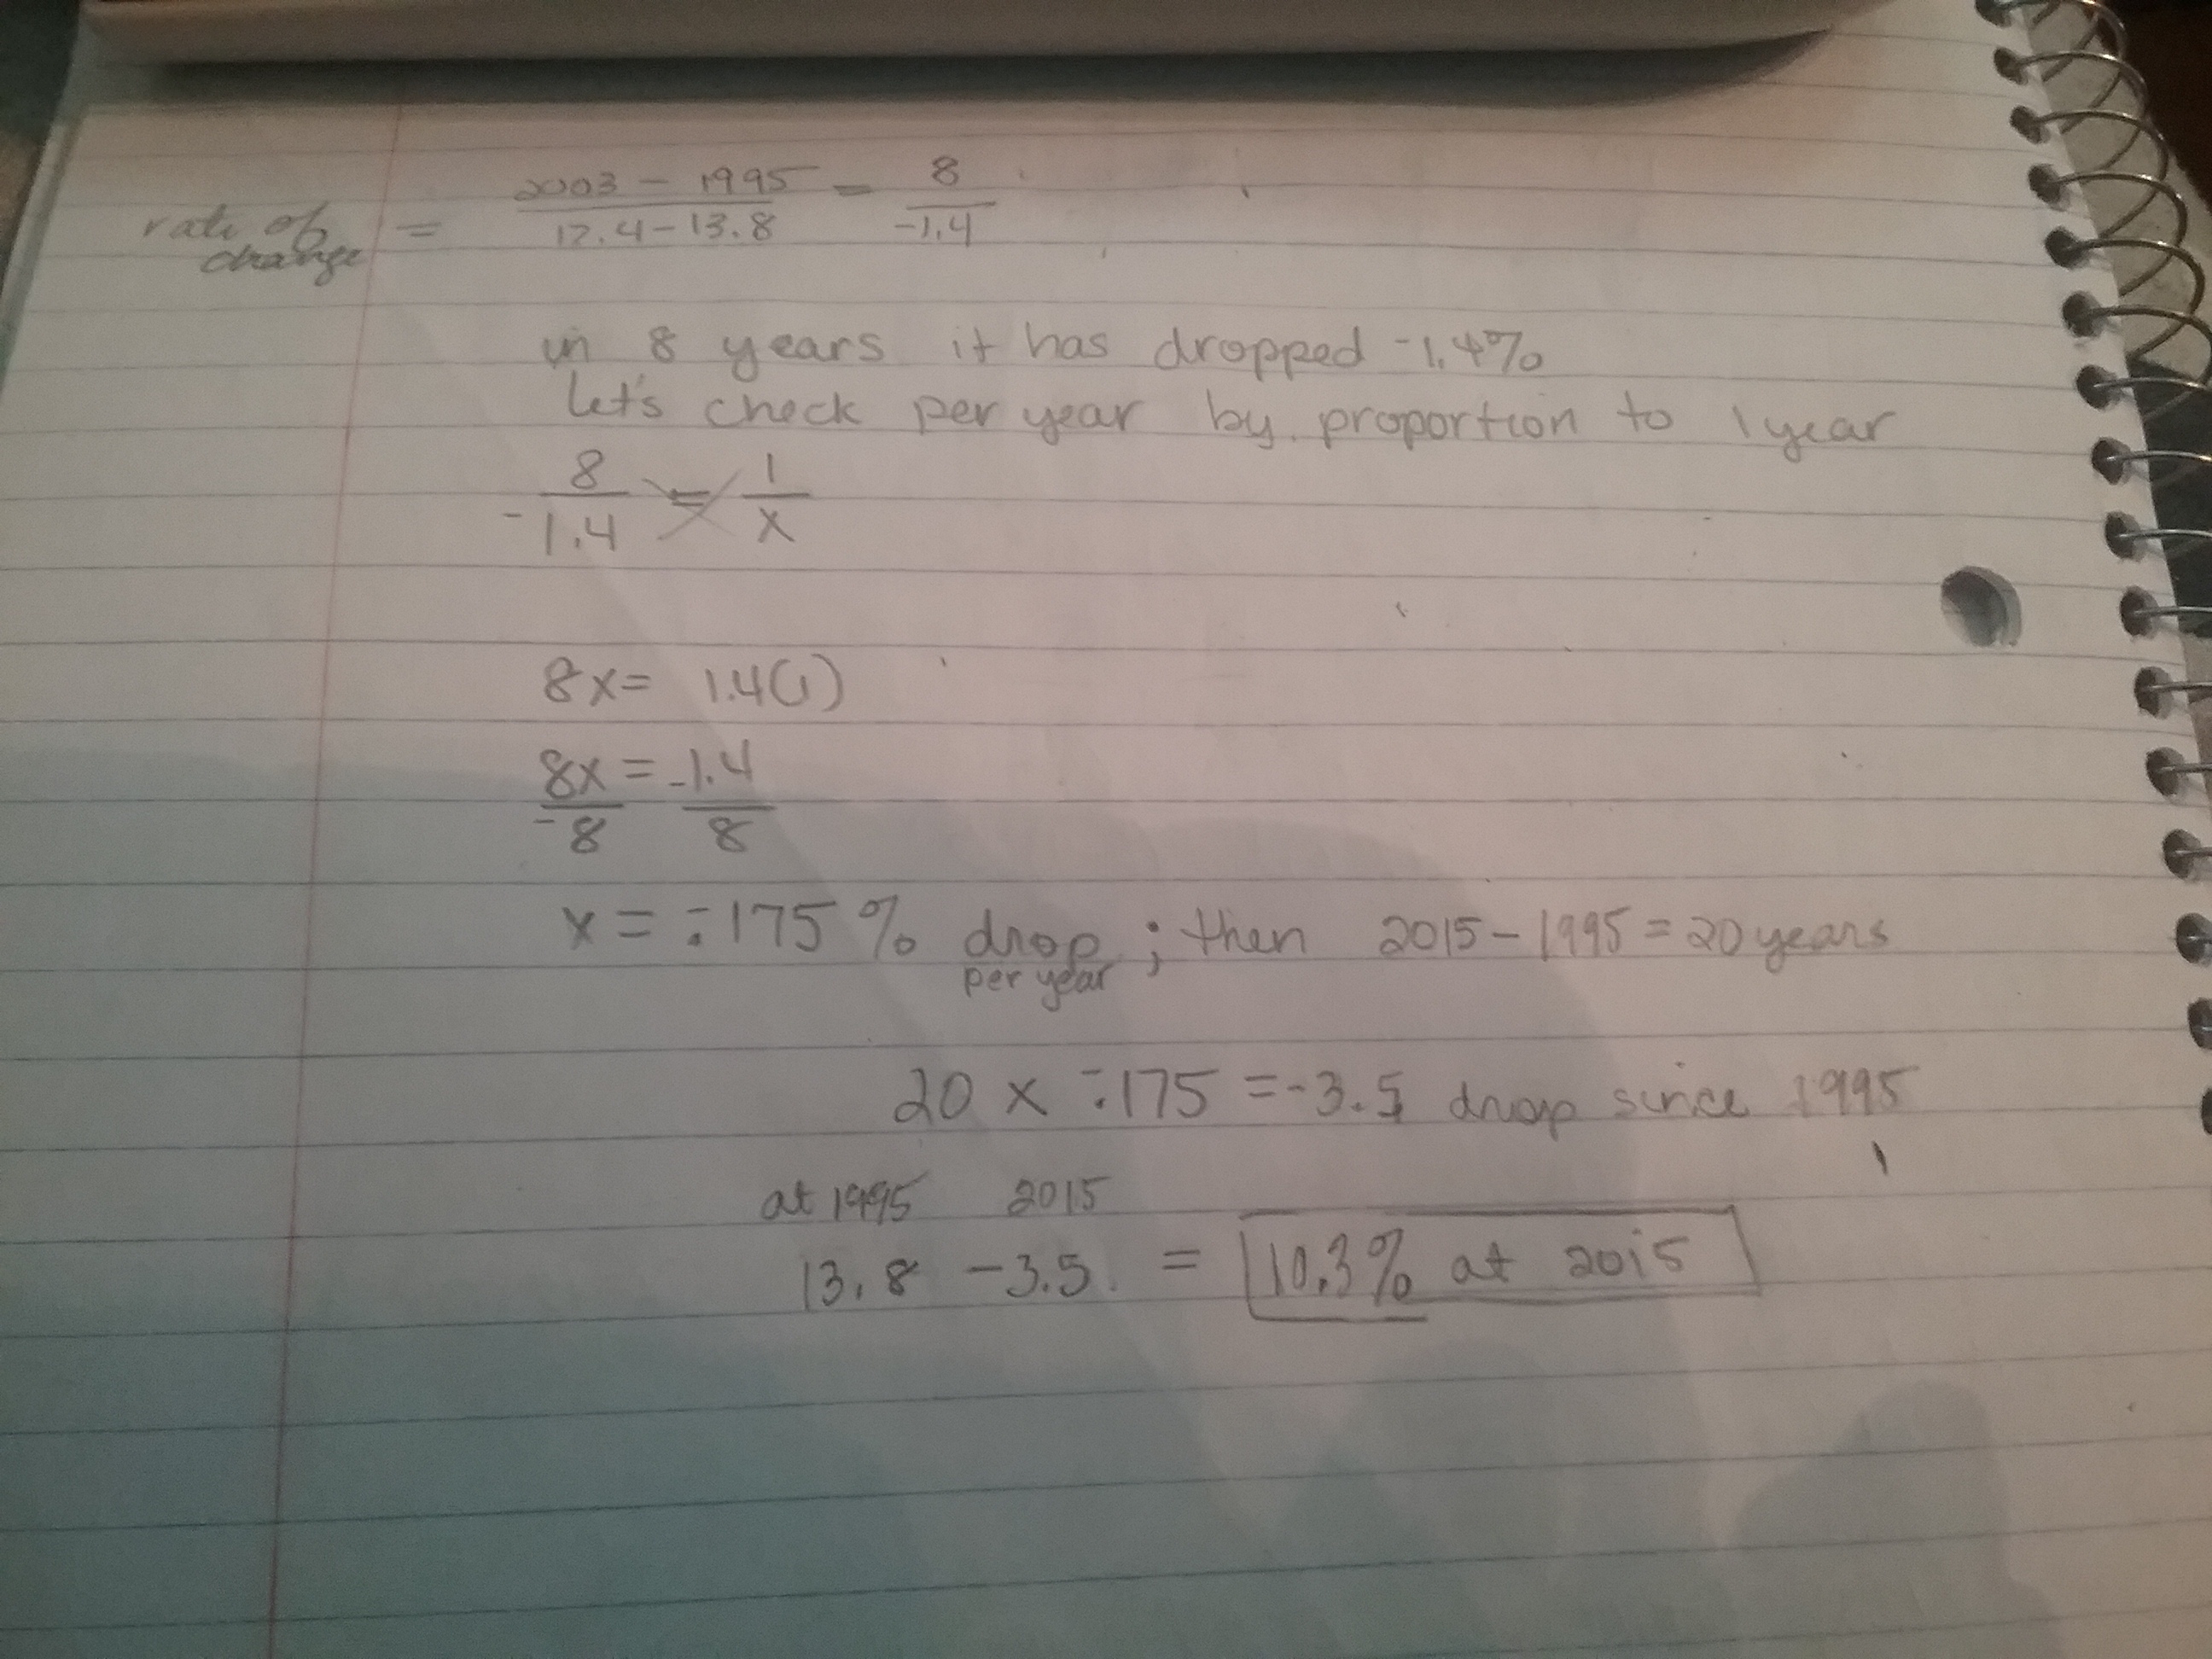 rate of change = 2003 - 1995 / 12.4 - 13.8 = 8 / -1.4
in 8 years it has dropped -1.4%
let's check per year by proportion to 1 year
8 / -1.4 = 1 / x
8x = 1.4(1)
8x / -8 = -1.4 / 8
x = -.175 % drop per year ; then 2015 - 1995 = 20 years
20 x -.175 = -3.5 drop since 1995
at 1995 2015
13.8 - 3.5 = 10.3% at 2015